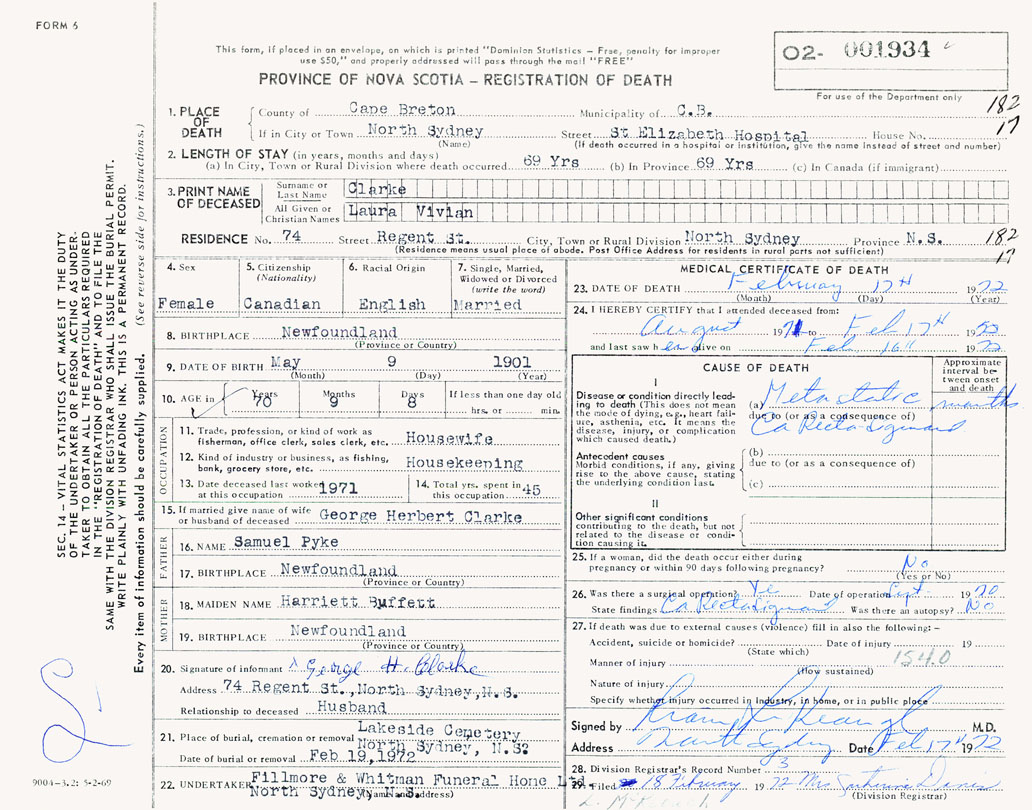 FORM 6
This form, if placed in an envelope, on which is printed "Dominion Statistics – Free, penalty for improper
use $50," and properly addressed will pass through the mail "FREE"
PROVINCE OF NOVA SCOTIA – REGISTRATION OF DEATH
O2- 001934
For use of the Department only
182
17
1. PLACE OF DEATH County of Cape Breton Municipality of C.B.
If in City or Town North Sydney Street St Elizabeth Hospital House No.
(Name) (If death occurred in a hospital or institution, give the name instead of street and number)
2. LENGTH OF STAY (in years, months and days)
(a) In City, Town or Rural Division where death occurred 69 Yrs (b) In Province 69 Yrs (c) In Canada (if immigrant)
3. PRINT NAME OF DECEASED Surname or Last Name Clarke
All Given or Christian Names Laura Vivian
RESIDENCE No. 74 Street Regent St. City, Town or Rural Division North Sydney Province N.S.
(Residence means usual place of abode. Post Office Address for residents in rural parts not sufficient)
182
17
4. Sex Female
5. Citizenship (Nationality) Canadian
6. Racial Origin English
7. Single, Married, Widowed or Divorced (write the word) Married
8. BIRTHPLACE Newfoundland
(Province or Country)
9. DATE OF BIRTH May 9 1901
(Month) (Day) (Year)
10. AGE in Years 70 Months 9 Days 8 If less than one day old
hrs. or min.
OCCUPATION
11. Trade, profession, or kind of work as
fisherman, office clerk, sales clerk, etc. Housewife
12. Kind of industry or business, as fishing,
bank, grocery store, etc. Housekeeping
13. Date deceased last worked at this occupation 1971
14. Total yrs. spent in this occupation 45
15. If married give name of wife
or husband of deceased George Herbert Clarke
FATHER
16. NAME Samuel Pyke
17. BIRTHPLACE Newfoundland
(Province or Country)
MOTHER
18. MAIDEN NAME Harriett Buffett
19. BIRTHPLACE Newfoundland
(Province or Country)
20. Signature of informant George H. Clarke
Address 74 Regent St., North Sydney, N.S.
Relationship to deceased Husband
21. Place of burial, cremation or removal Lakeside Cemetery
North Sydney, N.S?
Date of burial or removal Feb 19, 1972
22. UNDERTAKER Fillmore & Whitman Funeral Home Ltd
North Sydney, N.S.
(Name and address)
MEDICAL CERTIFICATE OF DEATH
23. DATE OF DEATH February 17th 1972
(Month) (Day) (Year)
24. I HEREBY CERTIFY that I attended deceased from:
August 1971 to Feb 17th 1972
and last saw her alive on Feb 16th 1972
CAUSE OF DEATH
Approximate interval between onset and death
I
Disease or condition directly leading to death (This does not mean
the mode of dying, e.g., heart failure, asthenia, etc. It means the
disease, injury, or complication
which caused death.)
(a) Metastatic months
due to (or as a consequence of)
Ca Recto-Sigmoid
Antecedent causes
Morbid conditions, if any, giving
rise to the above cause, stating
the underlying condition last.
(b)
due to (or as a consequence of)
(c)
II
Other significant conditions
contributing to the death, but not
related to the disease or condition causing it.
25. If a woman, did the death occur either during
pregnancy or within 90 days following pregnancy? No
(Yes or No)
26. Was there a surgical operation? Yes Date of operation Sept 1970
State findings Ca Recto Sigmoid Was there an autopsy? No
27. If death was due to external causes (violence) fill in also the following: –
Accident, suicide or homicide? Date of injury 19
(State which)
Manner of injury 154.0
(How sustained)
Nature of injury
Specify whether injury occurred in Industry, in home, or in public place
Signed by M.D.
Address North Sydney Date Feb 17th 1972
28. Division Registrar's Record Number 3
29. Filed 18 February 1972 Mrs
(Division Registrar)
SEC. 14 – VITAL STATISTICS ACT MAKES IT THE DUTY
OF THE UNDERTAKER OR PERSON ACTING AS UNDER-
TAKER TO OBTAIN ALL THE PARTICULARS REQUIRED
IN THE "REGISTRATION OF DEATH" AND TO FILE THE
SAME WITH THE DIVISION REGISTRAR WHO SHALL ISSUE THE BURIAL PERMIT.
WRITE PLAINLY WITH UNFADING INK. THIS IS A PERMANENT RECORD.
Every item of information should be carefully supplied. (See reverse side for instructions.)
9004-3.2: 5-2-69